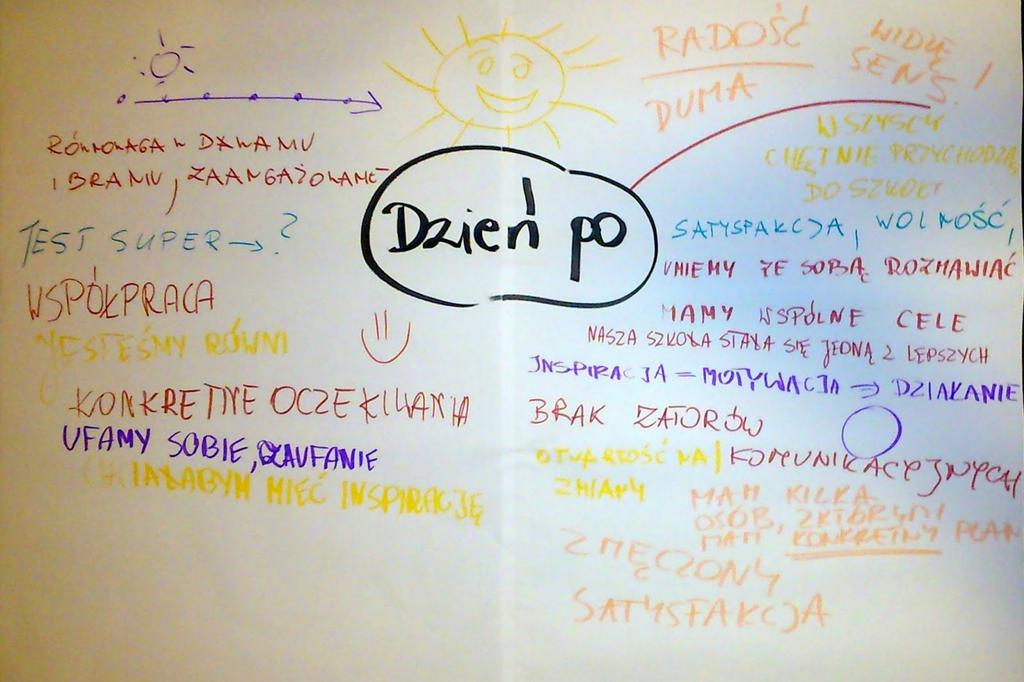 Dzień po
RÓWNOWAGA W DAWANIU
I BRANIU, ZAANGAŻOWANIE
JEST SUPER → ?
WSPÓŁPRACA
JESTEŚMY RÓWNI
KONKRETNE OCZEKIWANIA
UFAMY SOBIE, ZAUFANIE
CHCIAŁABYM MIEĆ INSPIRACJĘ
RADOŚĆ
DUMA
WIDZĘ
SENS!
WSZYSCY
CHĘTNIE PRZYCHODZĄ
DO SZKOŁY
SATYSFAKCJA, WOLNOŚĆ,
UMIEMY ZE SOBĄ ROZMAWIAĆ
MAMY WSPÓLNE CELE
NASZA SZKOŁA STAŁA SIĘ JEDNĄ Z LEPSZYCH
INSPIRACJA = MOTYWACJA → DZIAŁANIE
BRAK ZATORÓW
KOMUNIKACYJNYCH
OTWARTOŚĆ NA
ZMIANY
MAM KILKA
OSÓB, Z KTÓRYMI
MAM KONKRETNY PLAN
ZMĘCZONY
SATYSFAKCJA